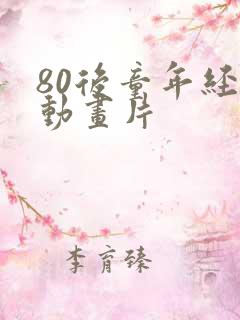 80後童年经
動畫片
李育臻